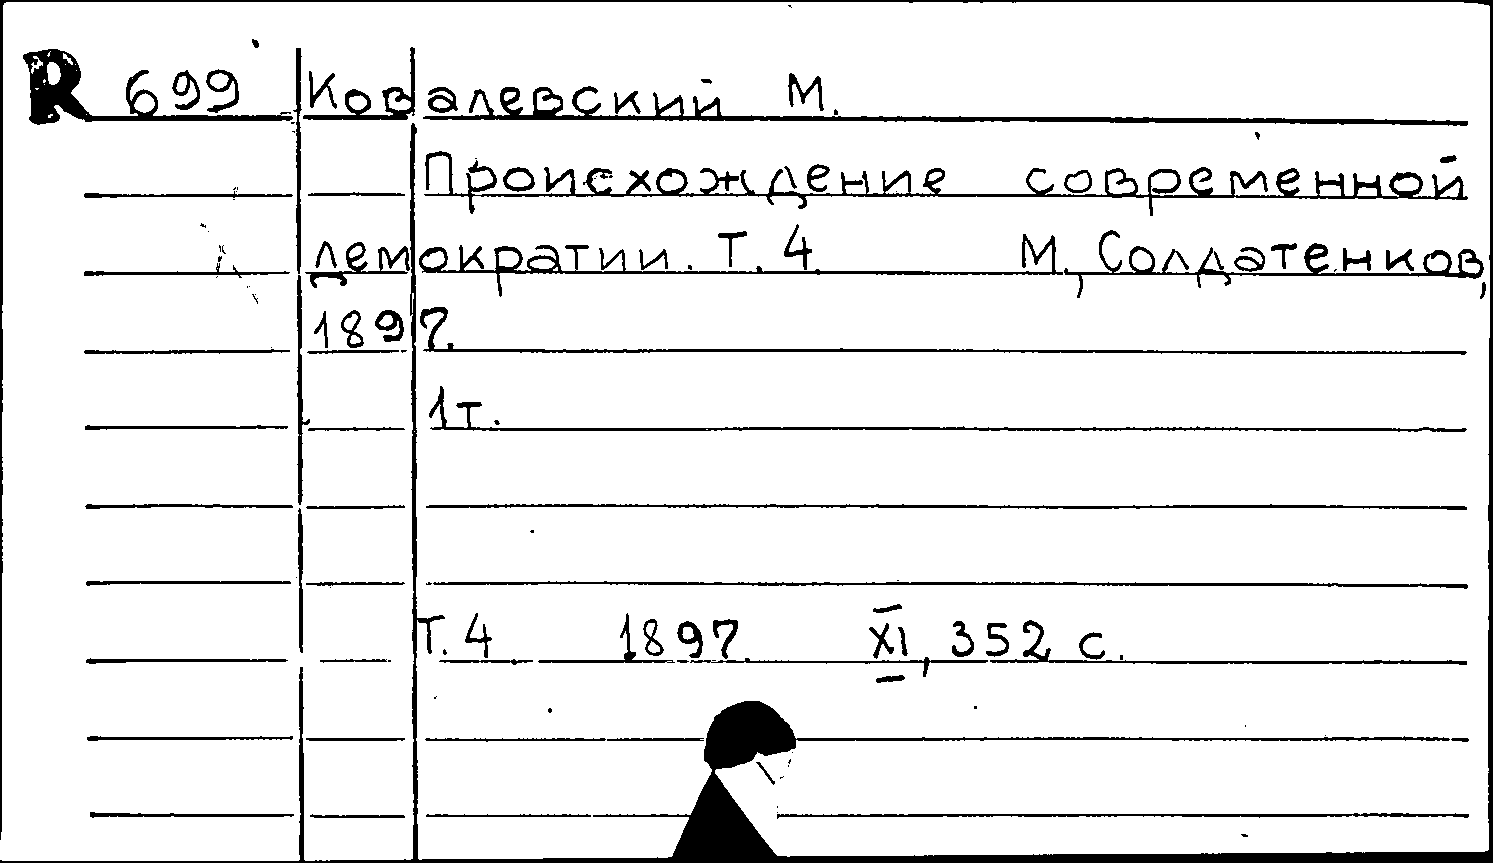 R 699 Ковалевский М.
Происхождение современной
демократии. Т. 4. М., Солдатенков,
1897.
1т.
Т. 4 1897. XI, 352 с.